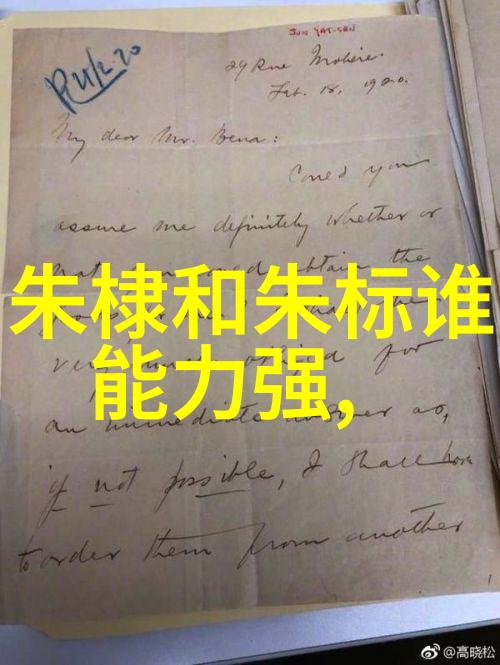 SUN YAT-SEN
R 21/2.20
29 Rue Molière.
Feb. 18, 1920.
My dear Mr. Bena:
Could you
assure me definitely whether or
not obtain the
朱棣和朱标谁
very for
能力强,
an immediate answer as,
if not possible, I shall have
to order them from another
@高晓松